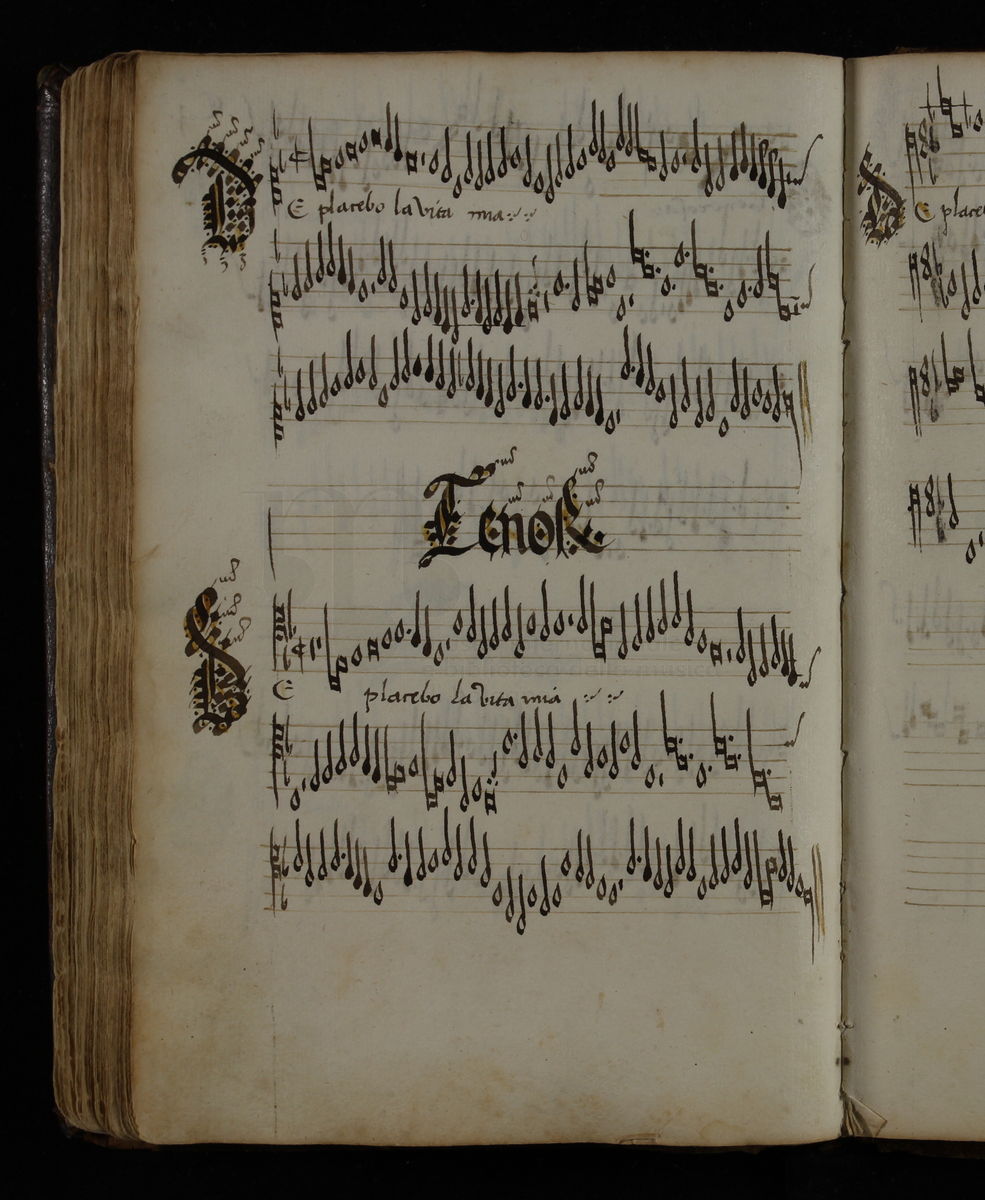 DE placebo la vita mia
TenoR
DE placebo la vita mia
DE place